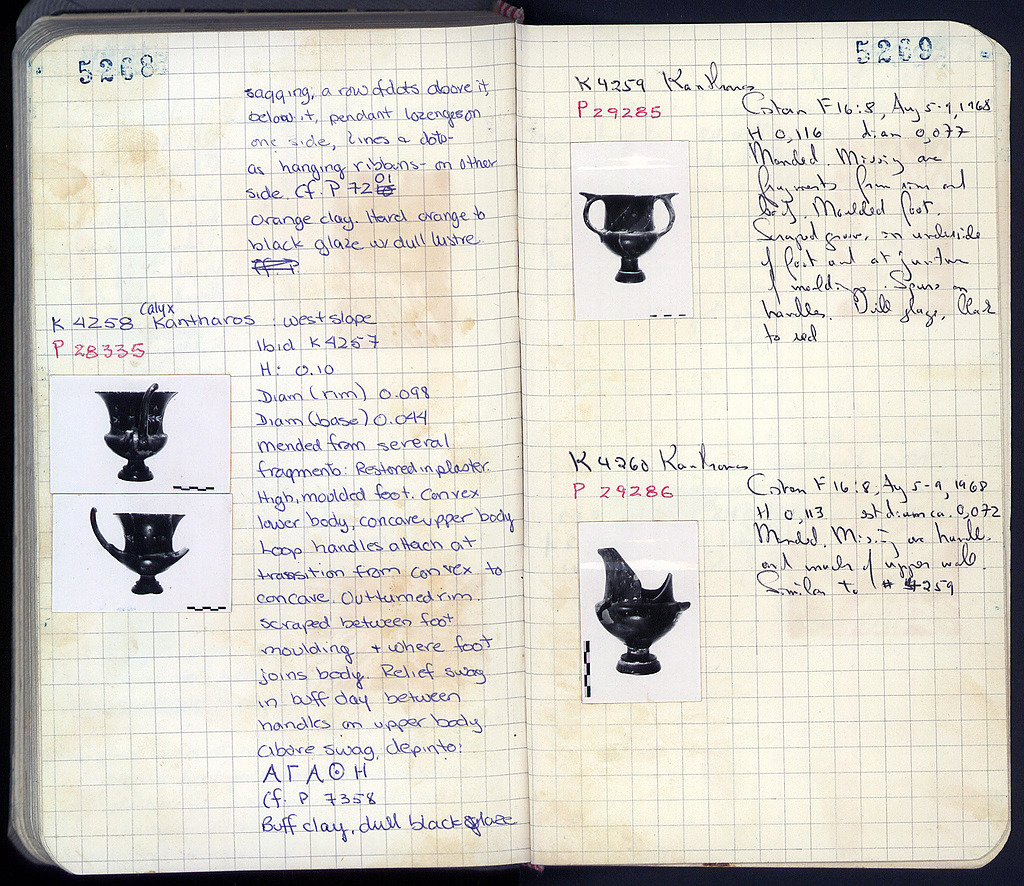 5268
sagging, a row of dots above it,
below it, pendant lozenges on
one side, lines & dots-
as hanging ribbons- on other
side. Cf. P 7201
Orange clay. Hard orange to
black glaze w dull lustre
K 4258 Calyx Kantharos : west slope
P 28335
Ibid K4257
H: 0.10
Diam (rim) 0.098
Diam (base) 0.044
mended from several
fragments: Restored in plaster.
High, moulded foot. Convex
lower body, concave upper body
Loop handles attach at
transition from convex to
concave. Outturned rim.
scraped between foot
moulding + where foot
joins body. Relief swag
in buff clay between
handles on upper body.
Above swag, depinto:
ΑΓΑΘΗ
Cf. P 7358
Buff clay, dull black glaze
5269
K 4259 Kantharos
P 29285
Cistern F 16:8, Aug 5-9, 1968
H 0,116 diam 0,077
Mended. Missing are
fragments from rim and
body. Moulded foot.
Scraped groove, on underside
of foot and at juncture
of moldings. Spurs on
handles. Dull glaze, black
to red
K 4260 Kantharos
P 29286
Cistern F 16:8, Aug 5-9, 1968
H 0,113 est diam ca. 0,072
Mended. Missing are handle
and much of upper wall.
Similar to # 4259